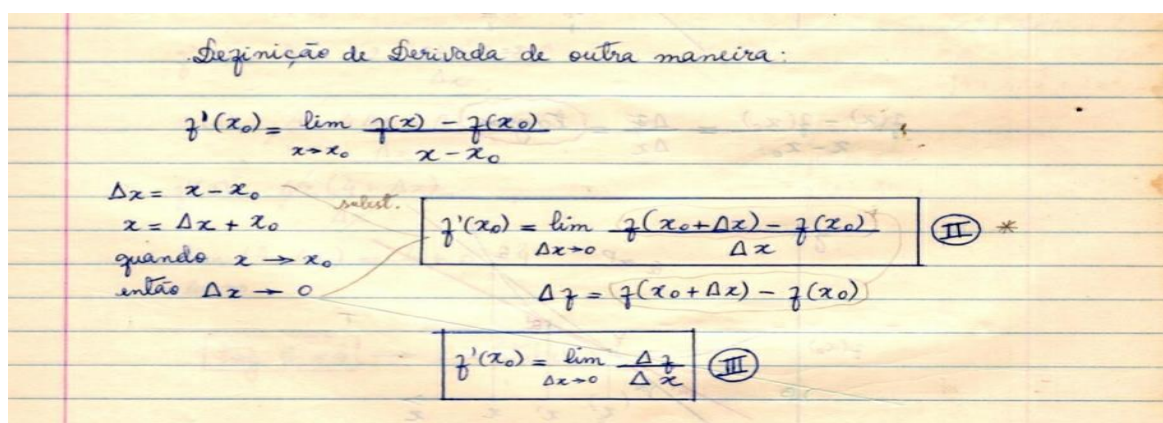 Definição de Derivada de outra maneira:
f'(x₀) = lim x→x₀ f(x) - f(x₀) / x - x₀
Δx = x - x₀
subst.
x = Δx + x₀
quando x → x₀
então Δx → 0
f'(x₀) = lim Δx→0 f(x₀+Δx) - f(x₀) / Δx II *
Δf = f(x₀+Δx) - f(x₀)
f'(x₀) = lim Δx→0 Δf / Δx III